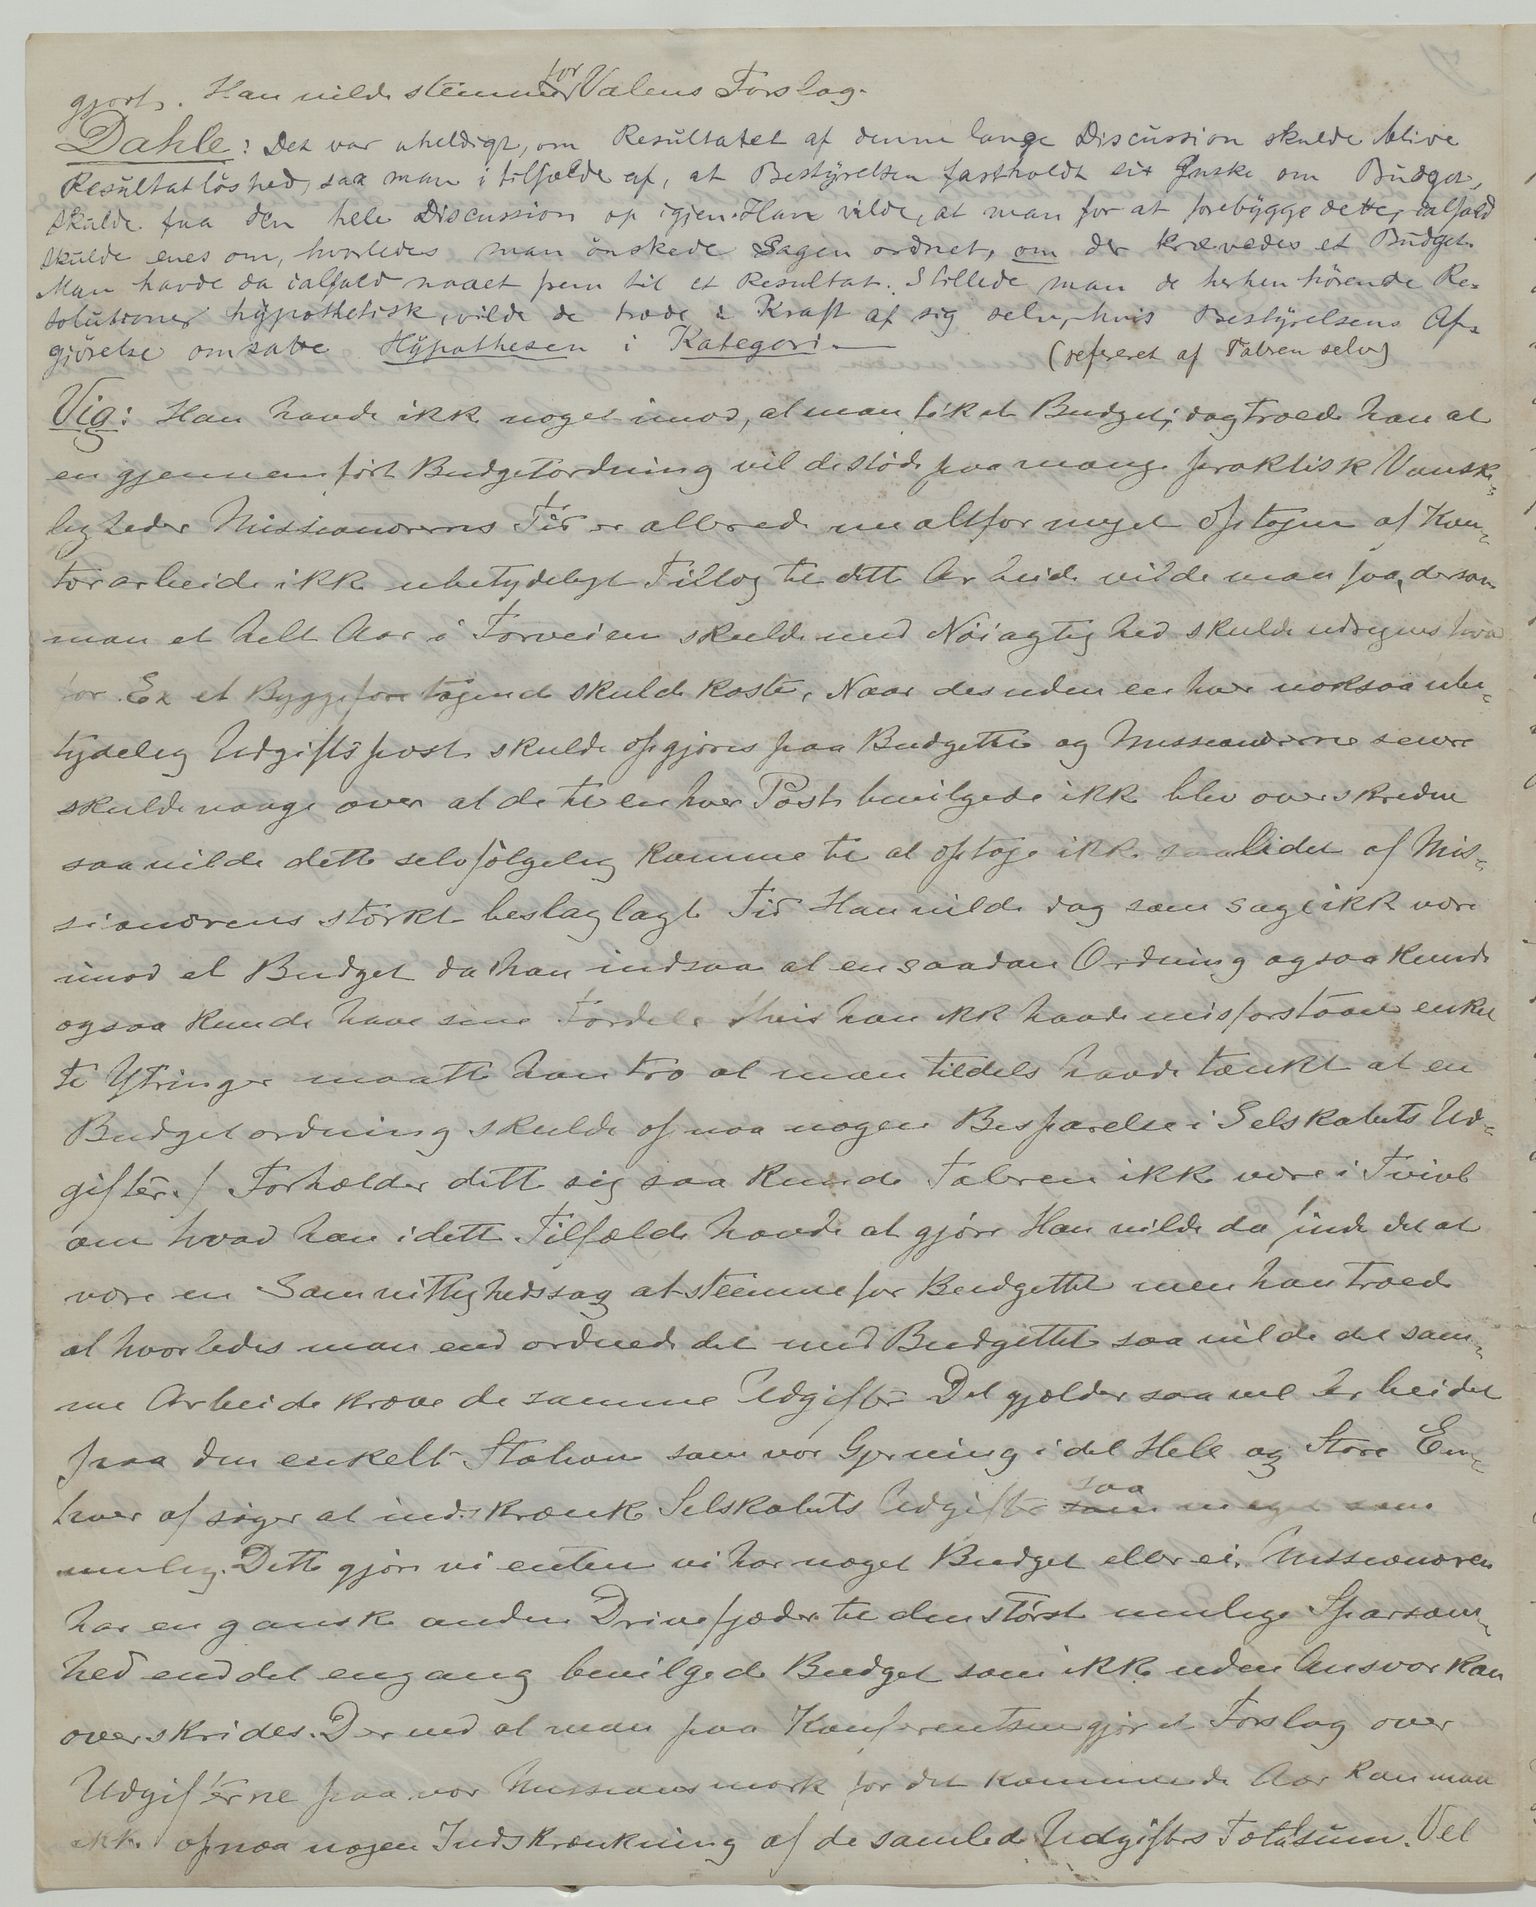 gjort. Han vilde stemme for Valens Forslag.
Dahle: Det var uheldigt, om Resultatet af denne lange Discussion skulde blive
Resultatløshed, saa man i tilfælde af, at Bestyrelsen fastholdt sit Ønske om Budget,
skulde faa den hele Discussion op igjen. Han vilde, at man for at forebygge dette, ialfald
skulde enes om, hvorledes man ønskede Sagen ordnet, om der krævedes et Budget.
Man havde da ialfald naaet frem til et Resultat. Stillede man de herhen hørende Re-
solutioner hypothetisk, vilde de træde i Kraft af sig selv, hvis Bestyrelsens Af-
gjørelse omsatte Hypothesen i Kategori.
(refereret af Taleren selv)
Vig: Han havde ikke noget imod, at man fik et Budget; dog troede han at
en gjennemført Budgetordning vilde støde paa mange praktisk Vanske-
ligheder Missionærerns Tid er allerede nu altfor meget optagen af Kon-
torarbeide ikke ubetydeligt Tillæg til dette Arbeide vilde man faa, dersom
man et helt Aar i Forveien skulde med Nøiagtighed skulde udregnes hvad
for Ex et Byggeforetagende skulde koste, Naar desuden en hver noksaa ube-
tydelig Udgiftspost skulde opgjøres paa Budgettet og Missionærerne senere
skulde vaage over at de til en hver Post bevilgede ikke blev overskredne
saa vilde dette selvfølgelig komme til at optage ikke saa lidet af Mis-
sionærens stærkt beslaglagte Tid Han vilde dog som sagt ikke være
imod et Budget da han indsaa at en saadan Ordning ogsaa kunde
ogsaa kunde have sine Fordele Hvis han ikke havde misforstaaet enkel-
te Ytringer maatte han tro at man tildels havde tænkt at en
Budgetordning skulde opnaa nogen Besparelse i Selskabets Ud-
gifter. / Forholder dette sig saa kunde Taleren ikke være i Tvivl
om hvad han i dette Tilfælde havde at gjøre Han vilde da finde det at
være en Samvittighedssag at stemme for Budgettet men han troede
at hvorledes man end ordnede det med Budgettet saa vilde det sam-
me Arbeide kræve de samme Udgifter Det gjælder saa vel Arbeidet
paa den enkelte Station som vor Gjerning i det Hele og Store En-
hver af søger at indskrænke Selskabets Udgifter saa meget som
mulig. Dette gjør vi enten vi har noget Budget eller ei. Missionæren
har en ganske anden Drivefjæder til den størst mulige Sparsom-
hed end det engang bevilgede Budget som ikke uden Ansvar kan
overskrides. Derved at man paa Konferentsen gjør et Forslag over
Udgifterne paa vor Missionsmark for det kommende Aar kan man
ikke opnaa nogen Indskrænkning af de samlede Udgifters Totalsum. Vel